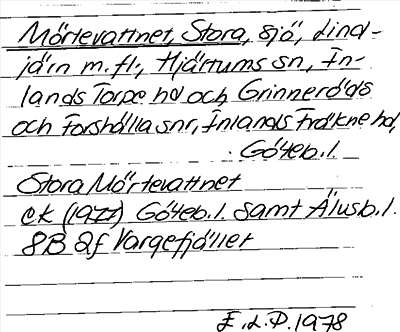 Mörtevattnet, Stora, sjö, Lind-
järn m.fl., Hjärtums sn, In-
lands Torpe hd och Grinneröds
och Forshälla snr, Inlands Fräkne hd,
Göteb.l.
Stora Mörtevattnet
ek (1977) Göteb.l. samt Älvsb.l.
8B 2f Vargefjället
E.L.P. 1978